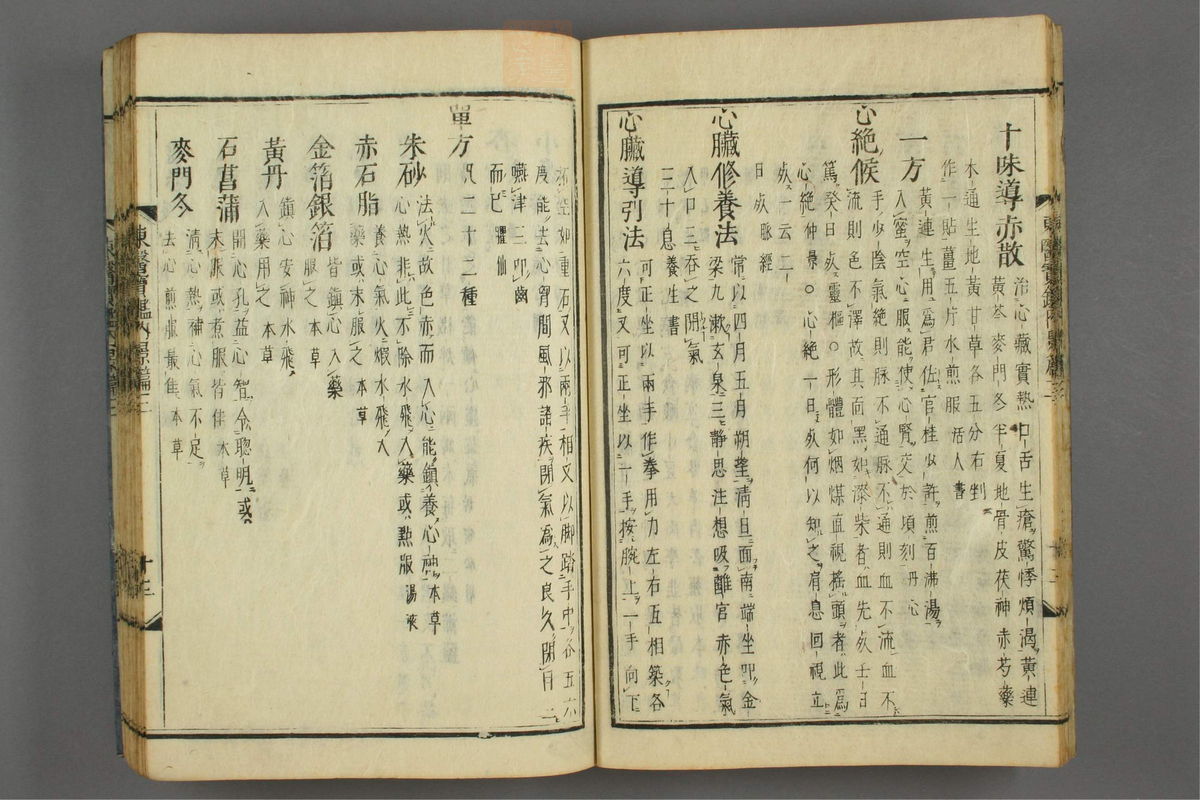 十味導赤散 治心藏實熱口舌生瘡驚悸煩渴黃連
黃芩麥門冬半夏地骨皮茯神赤芍藥
木通生地黃甘草各五分右剉
作一貼薑五片水煎服 活人書
一方 黃連生用爲君佐官桂少許煎百沸湯
入蜜空心服能使心腎交於頃刻 丹心
心絶候 手少陰氣絶則脉不通脉不通則血不流血不
流則色不澤故其面黑如漆柴者血先死壬日
篤癸日死 靈樞 ○形體如烟煤直視搖頭者此爲
心絶 仲景 ○心絶一日死何以知之肩息回視立
死 一云二
日死 脉經
心臟修養法 常以四月五月朔望淸旦面南端坐叩金
梁九漱玄泉三靜思注想吸離宮赤色氣
入口三吞之閉氣
三十息 養生書
心臟導引法 可正坐以兩手作拳用力左右互相築各
六度又可正坐以一手按腕上一手向下
拓空如重石又以兩手相叉以脚踏手中各五六
度能去心胷間風邪諸疾閉氣爲之良久閉目三
嚥津三叩齒
而已 臞仙
單方 凡二十二種
朱砂 法火故色赤而入心能鎭養心神 本草
心熱非此不除水飛入藥或點服 湯液
赤石脂 養心氣火煆水飛入
藥或末服之 本草
金箔銀箔 皆鎭心入藥
服之 本草
黃丹 鎭心安神水飛
入藥用之 本草
石菖蒲 開心孔益心智令聰明或
末服或煮服皆佳 本草
麥門冬 淸心熱補心氣不足
去心煎服最佳 本草
東醫寶鑑內景篇三
十三